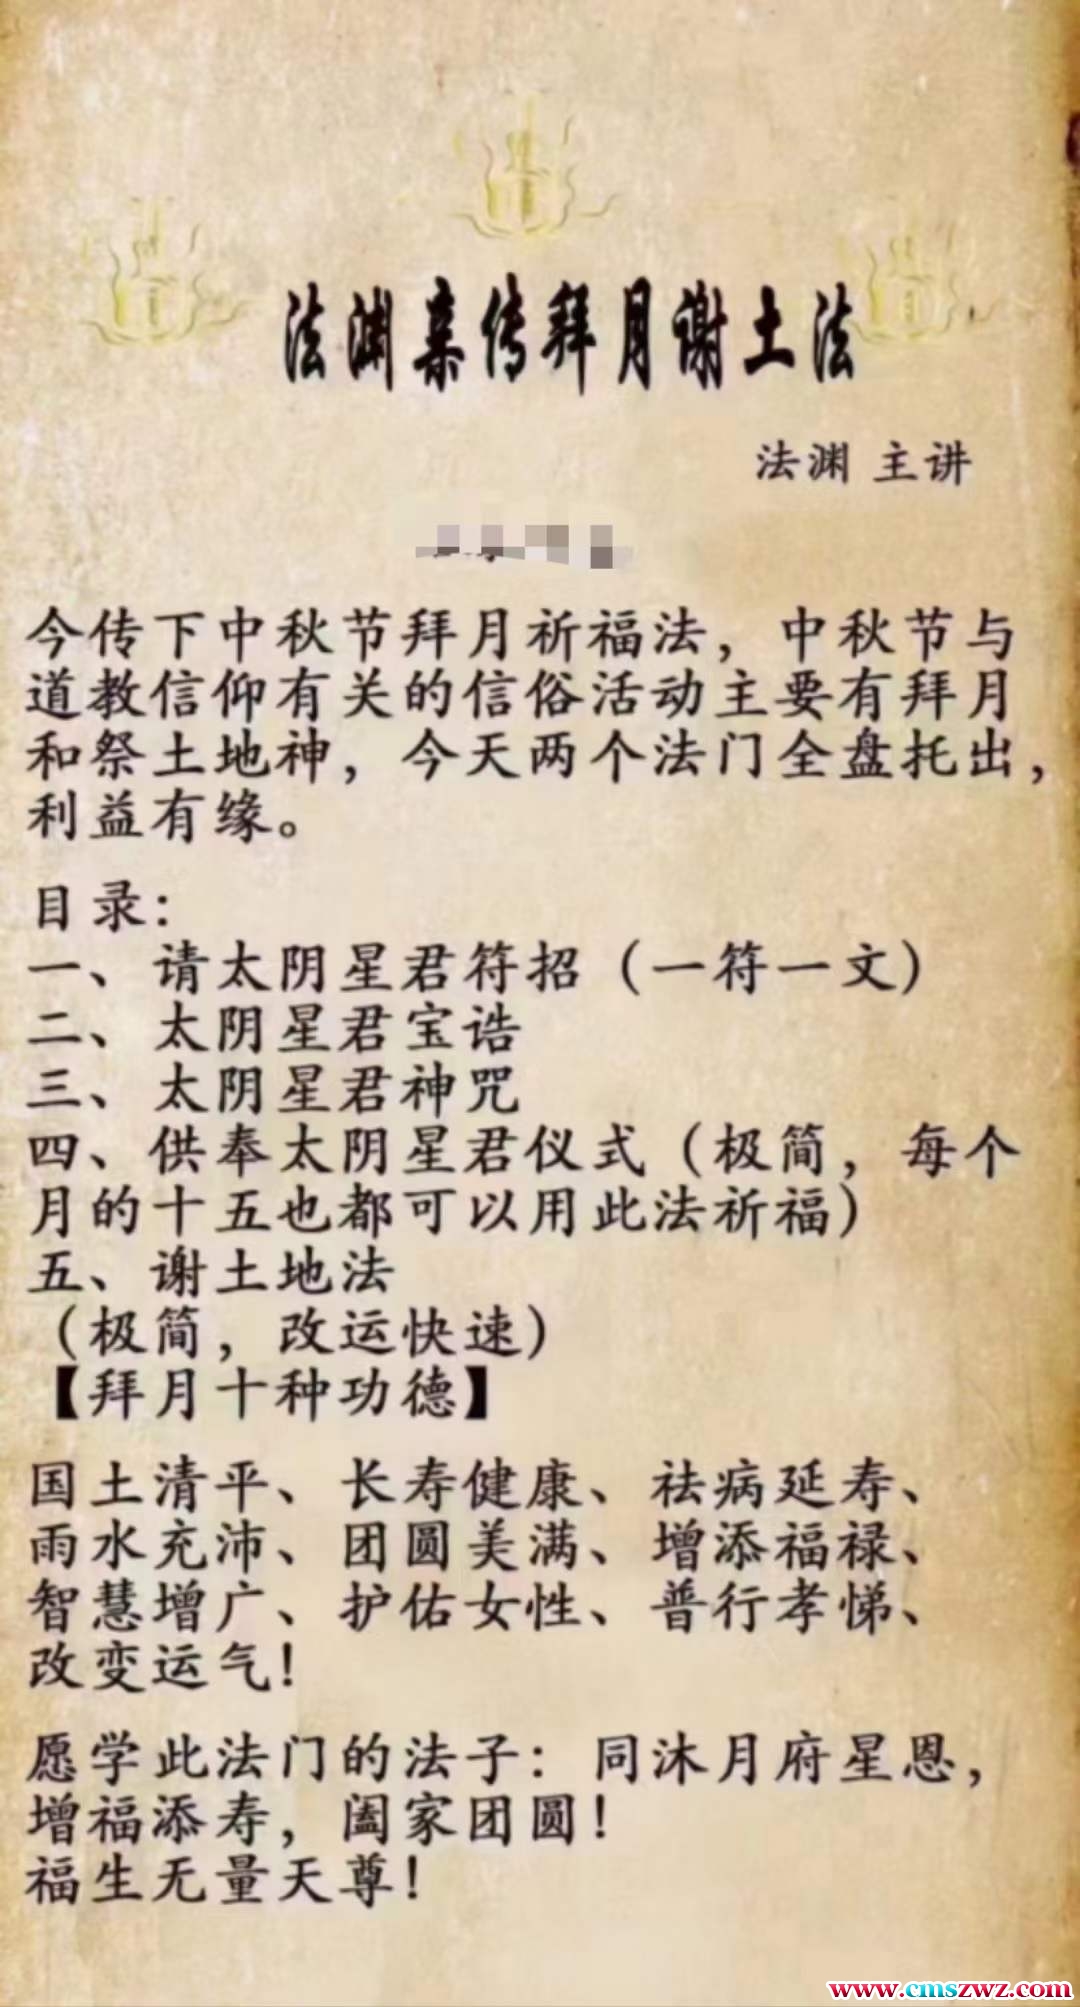 法渊亲传拜月谢土法
法渊 主讲
今传下中秋节拜月祈福法，中秋节与
道教信仰有关的信俗活动主要有拜月
和祭土地神，今天两个法门全盘托出，
利益有缘。
目录：
一、请太阴星君符招（一符一文）
二、太阴星君宝诰
三、太阴星君神咒
四、供奉太阴星君仪式（极简，每个
月的十五也都可以用此法祈福）
五、谢土地法
（极简，改运快速）
【拜月十种功德】
国土清平、长寿健康、祛病延寿、
雨水充沛、团圆美满、增添福禄、
智慧增广、护佑女性、普行孝悌、
改变运气！
愿学此法门的法子：同沐月府星恩，
增福添寿，阖家团圆！
福生无量天尊！
www.cmszwz.com